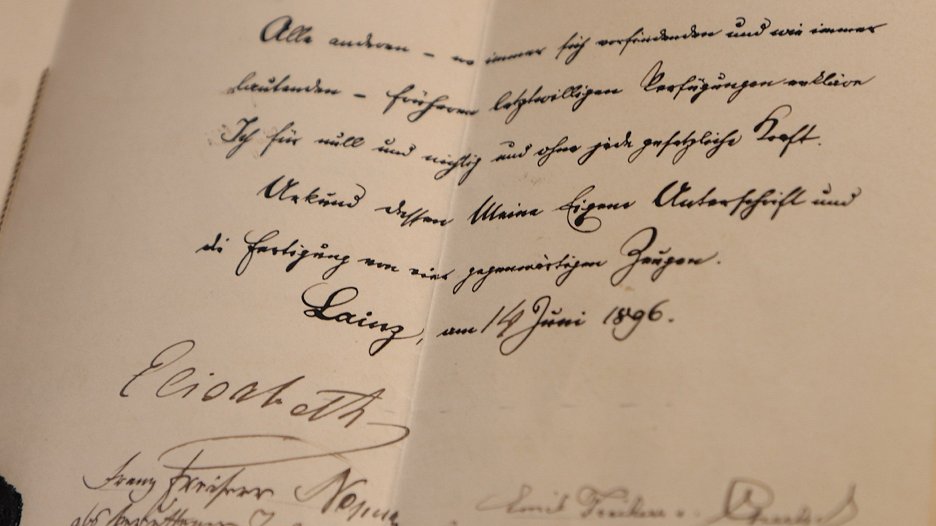 Alle anderen – wo immer sich vorfindenden und wie immer
lautenden – früheren letztwilligen Verfügungen erkläre
Ich für null und nichtig und ohne jede gesetzliche Kraft.
Urkund dessen Meine Eigene Unterschrift und
die Fertigung von vier gegenwärtigen Zeugen.
Lainz, am 14 Juni 1896.
Elisabeth
Franz Freiherr Nopcsa
Emil Freiherr v.